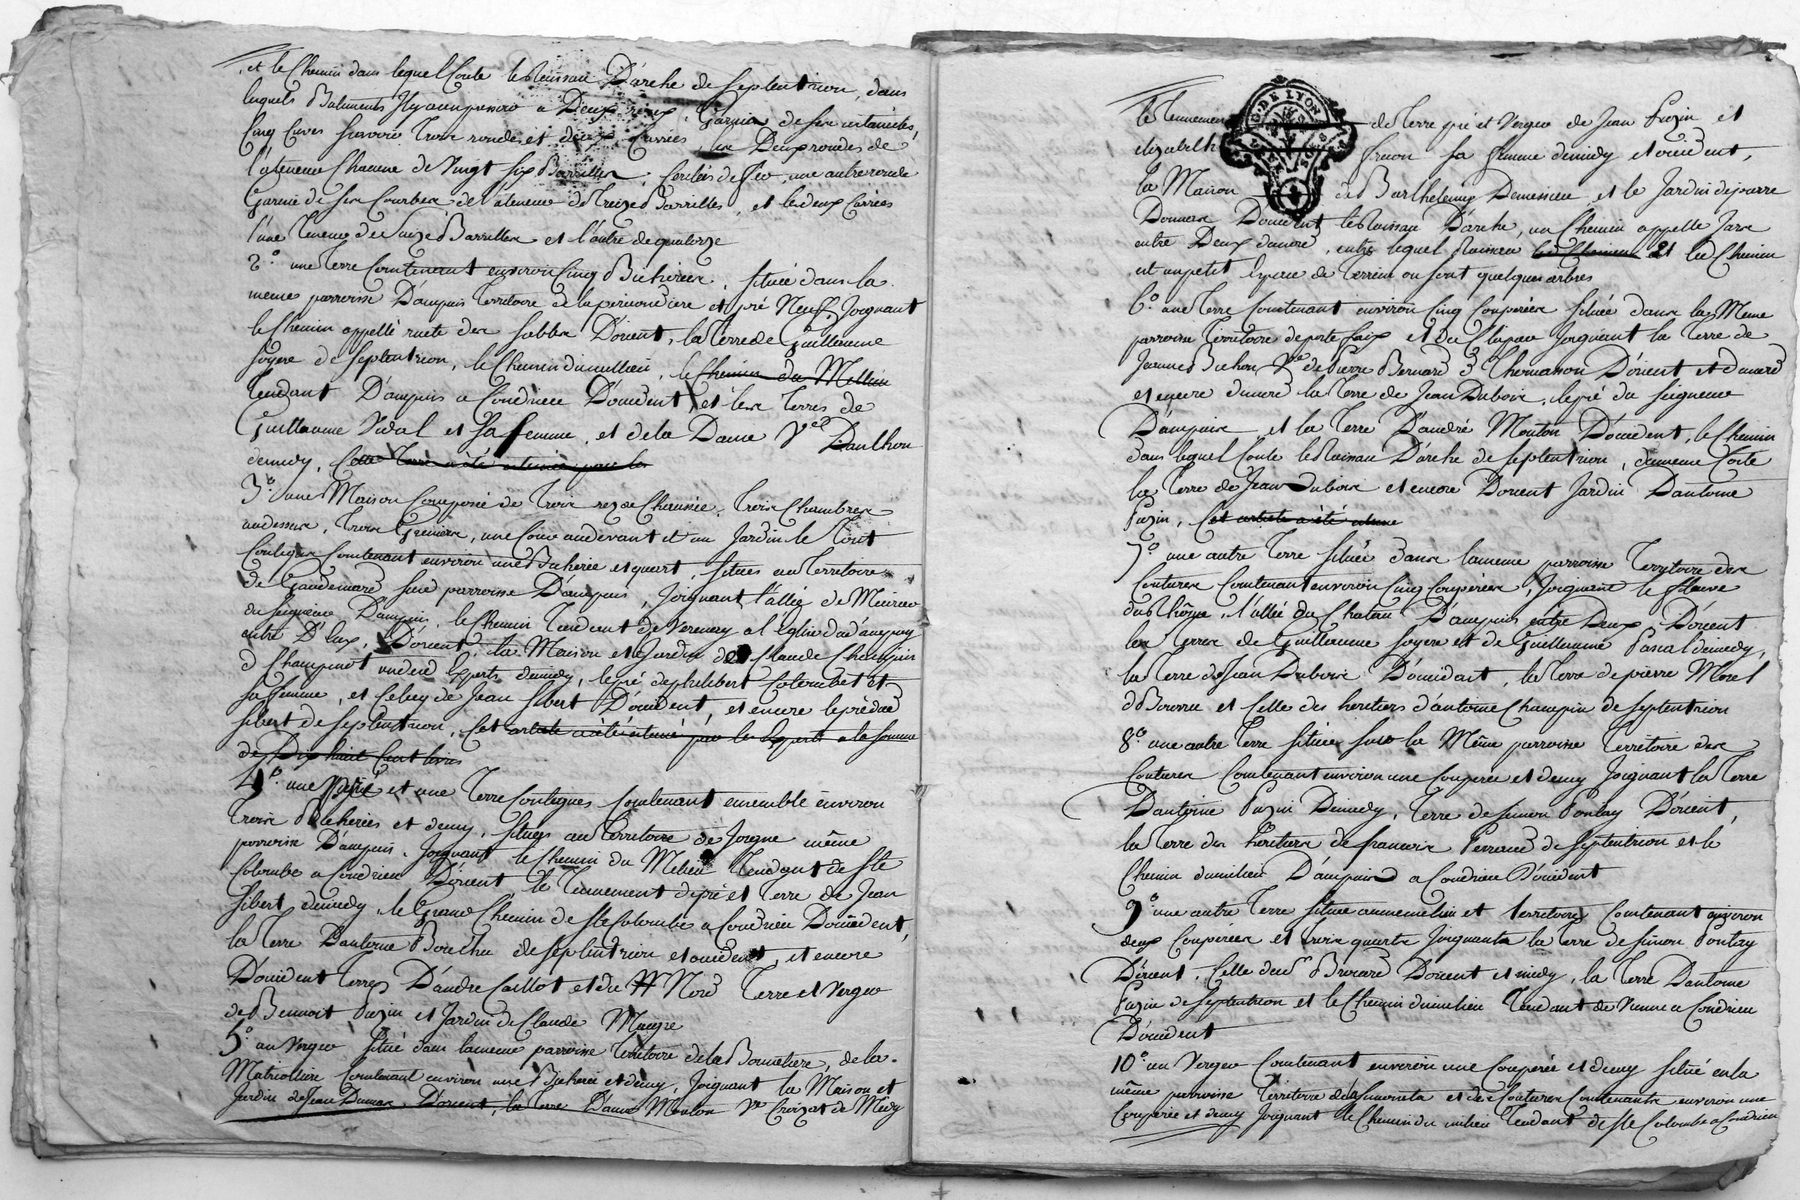 et le Chemin dans lequel Coule le Ruisseau D'arche de septentrion, dans
lequels Batiments Il y a un pressoir a Deux Garnie de ses ustancilles,
Cinq Cuves scavoir Trois rondes et deux Carrées, les Deux rondes de
l'ateneue Chacune de Vingt six Barrilles, Cerclés de fer, une autre ronde
Garnie de ses Courbes de l'ateneue de Treize Barrilles, et les deux Carrées
l'une Teneue de Seize Barrilles et l'autre de quatorze
2.° une Terre Contenant environ Cinq Bicherées, située dans la
meme parroisse D'ampuis Territoire de la et pré Neuf, Joignant
le Chemin appellé ruete des sables D'orient, la Terre de Guillaume
soyere de septentrion, le Chemin du millieu, le Chemin du Millieu
Tendant D'ampuis a Condrieu D'occident, et les Terres de
Guillaume Vidal et sa femme, et de la Dame Ve. Danthon
de midy, Cette Terre a été estimée par les
3.° une Maison Composée de Trois rez de Chaussée, Trois Chambres
au dessus, Trois Greniers, une Cour au devant et un Jardin le Tout
Contigus Contenant environ une Bicherée et quart, situés au Territoire
de Gaudemard susd parroisse D'ampuis, Joignant l'allée de Meuriers
du seigneur D'ampuis, le Chemin Tendant de Verenay a l'Eglise d'ampuis
entre D'eux, D'orient, la Maison et Jardin de Claude Champin
de midy, le pré de philibert Colombet et
sa femme, et Celuy de Jean sibert D'occident, et encore le pré dud
sibert de septentrion, Cet article a été estimé par les Experts a la somme
de Dix huit Cent livres
4.° une pré et une Terre Contigues Contenant ensemble environ
Trois Bicherées et demy, situés au Territoire de Jorgne même
parroisse D'ampuis, Joignant le Chemin du Milieu Tendant de Ste
Colombe a Condrieu D'orient le Tennement de pré et Terre de Jean
sibert de midy, le Grand Chemin de Ste Colombe a Condrieu D'occident,
la Terre D'antoine Bouchu de septentrion et occident, et encore
D'occident Terres D'andre Caillot et du Nord Terre et Verger
de Benoit Puzin et Jardin de Claude
5.° un Verger situé dans la meme parroisse Territoire de la Bonneliere, de la
Contenant environ une Bicherée et demy, Joignant la Maison et
Jardin de Jean D'orient, la Terre D'andré Mouton Ve Crozat de Midy
le Tennement de Terre pré et Verger de Jean Puzin et
elizabeth sa femme de midy et occident,
la Maison de Barthelemy et le Jardin de pierre
D'occident le Ruisseau D'arche, un Chemin appellé
entre Deux entre lequel Ruisseau Le Chemin et led Chemin
est un petit Espace de Terrein ou sont quelques arbres
6.° une Terre Contenant environ Cinq Couperées située dans la Meme
parroisse Territoire de porte faix et du Clapau Joignant la Terre de
Jeanne Bichon Ve de Pierre Bernard D'orient et du nord
et encore du nord la Terre de Jean Dubois, le pré du seigneur
D'ampuis et la Terre D'andré Mouton D'occident, le Chemin
dans lequel Coule le Ruisseau D'arche de septentrion, du meme Coté
la Terre de Jean Dubois et encore D'orient Jardin D'antoine
Puzin, Cet article a été
7.° une autre Terre située dans la meme parroisse Territoire des
Coutures Contenant environ Cinq Couperées, Joignant le fleuve
du Rhône, l'allée du Chateau D'ampuis entre Deux D'orient
les Terres de Guillaume soyere et de Guillaume Pascal de midy,
la Terre de Jean Dubois D'occident, la Terre de pierre Morel
et Celle des heritiers d'antoine Champin de septentrion
8.° une autre Terre située sur la Même parroisse Territoire des
Coutures Contenant environ une Couperée et demy Joignant la Terre
D'antoine Puzin De midy, Terre de simon Pontay D'orient,
la Terre des heritiers de francois Perraud de septentrion et le
Chemin du milieu D'ampuis a Condrieu D'occident
9.° une autre Terre située au meme lieu et Territoire Contenant environ
deux Couperées et trois quarts Joignants la Terre de simon Pontay
D'orient, Celle du sr. D'orient et midy, la Terre D'antoine
Puzin de septentrion et le Chemin du milieu Tendant de Vienne a Condrieu
D'occident
10.° un Verger Contenant environ une Couperée et demy situé en la
même parroisse Territoire de et des Coutures Contenants environ une
Couperée et demy Joignant le Chemin du milieu Tendant de Ste Colombe a Condrieu